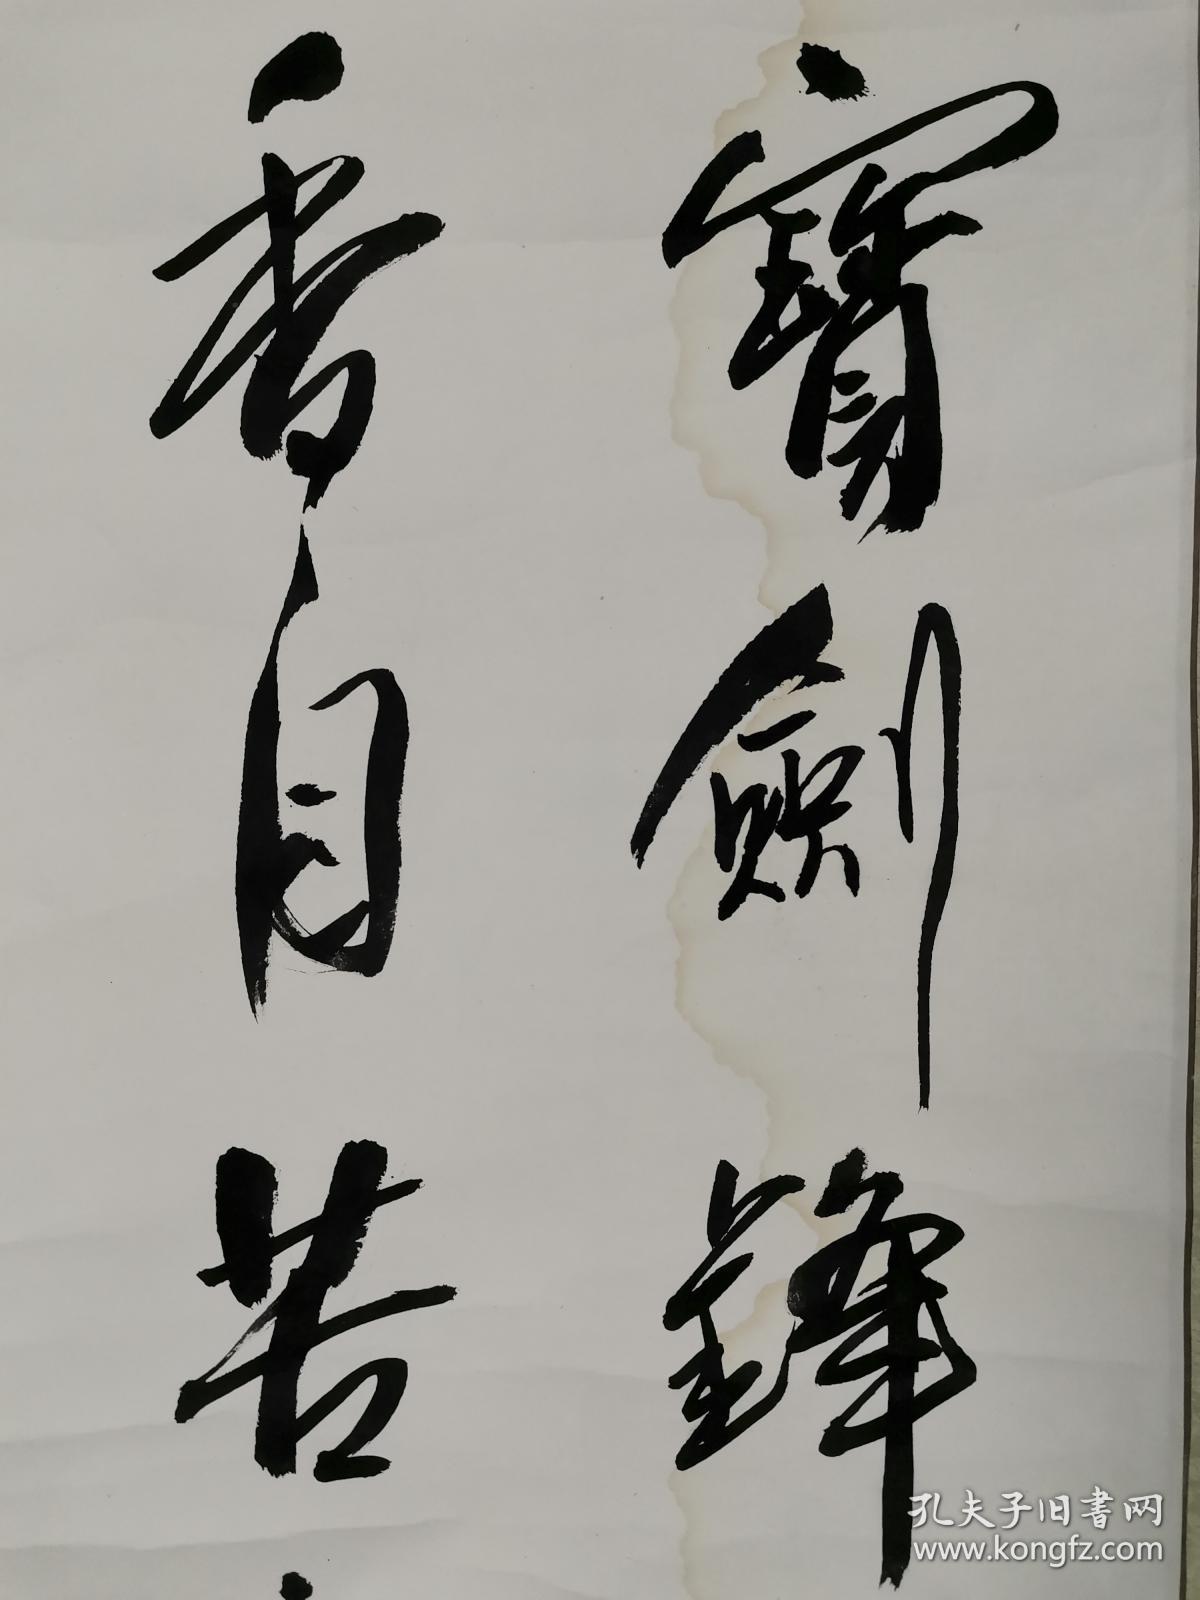 寶劍鋒
香自苦
孔夫子旧書网
www.kongfz.com